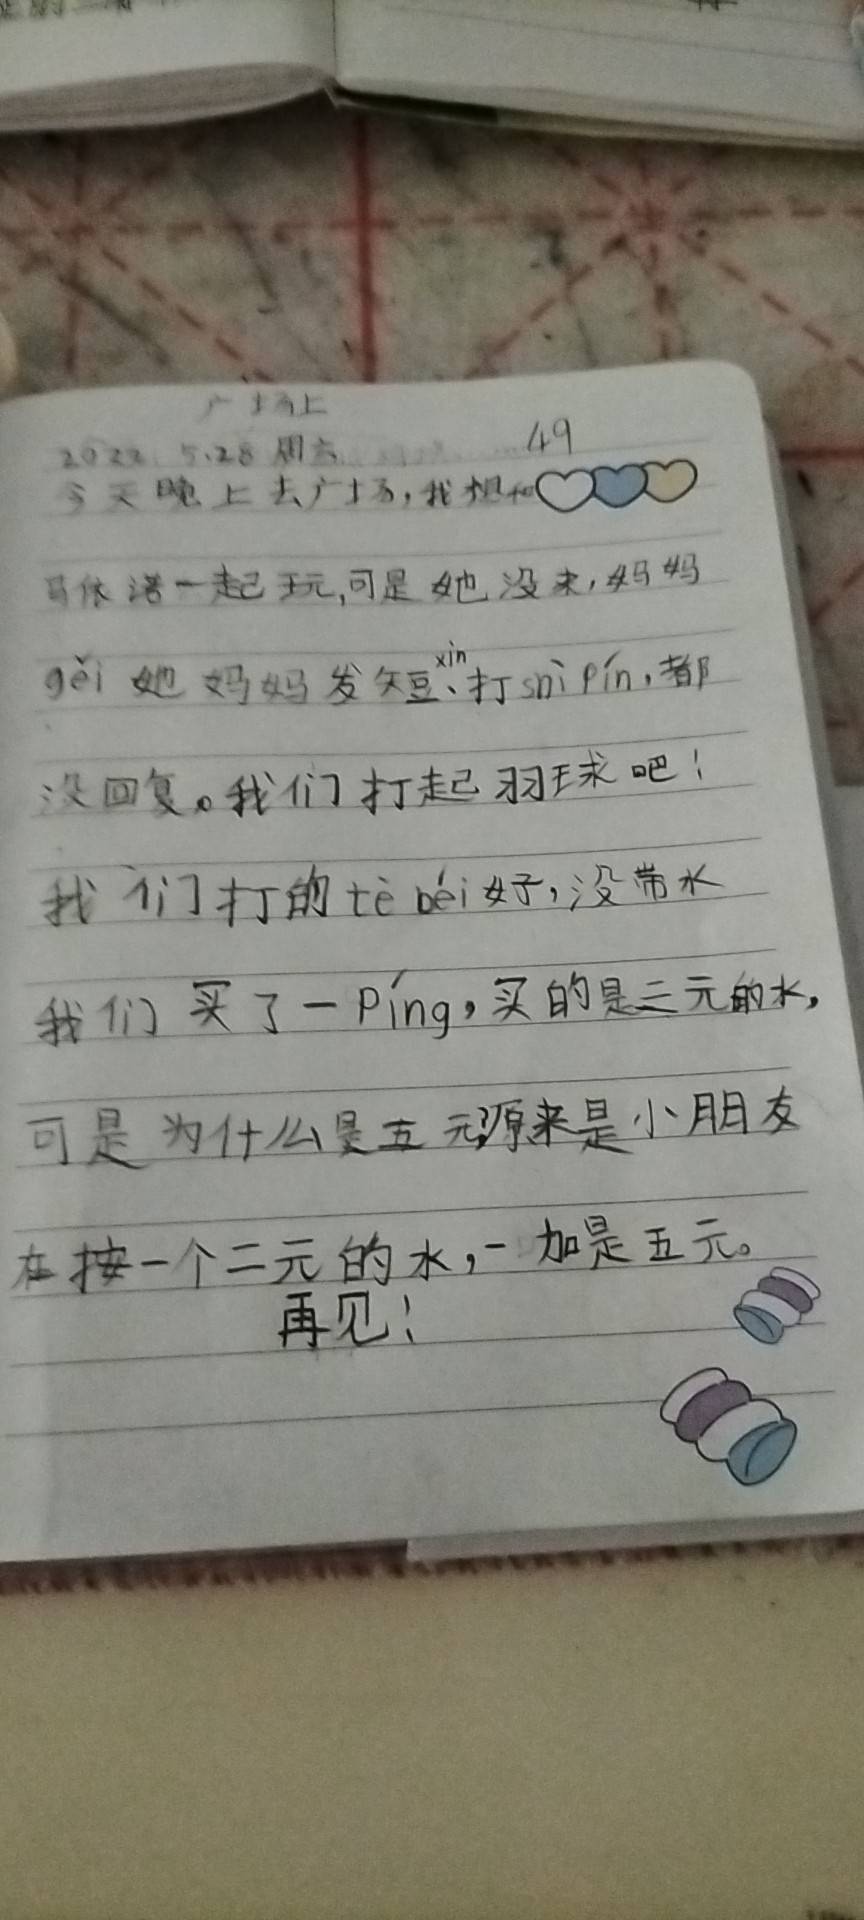 广场上
49
2022 5.28 周六
今天晚上去广场，我想和
马依诺一起玩,可是她没来，妈妈
gěi 她妈妈发短xìn、打shì pín，都
没回复。我们打起羽毛球吧！
我们打的tè béi好，没带水
我们买了一Píng，买的是三元的水，
可是为什么是五元?原来是小朋友
在按一个二元的水，一加是五元。
再见！